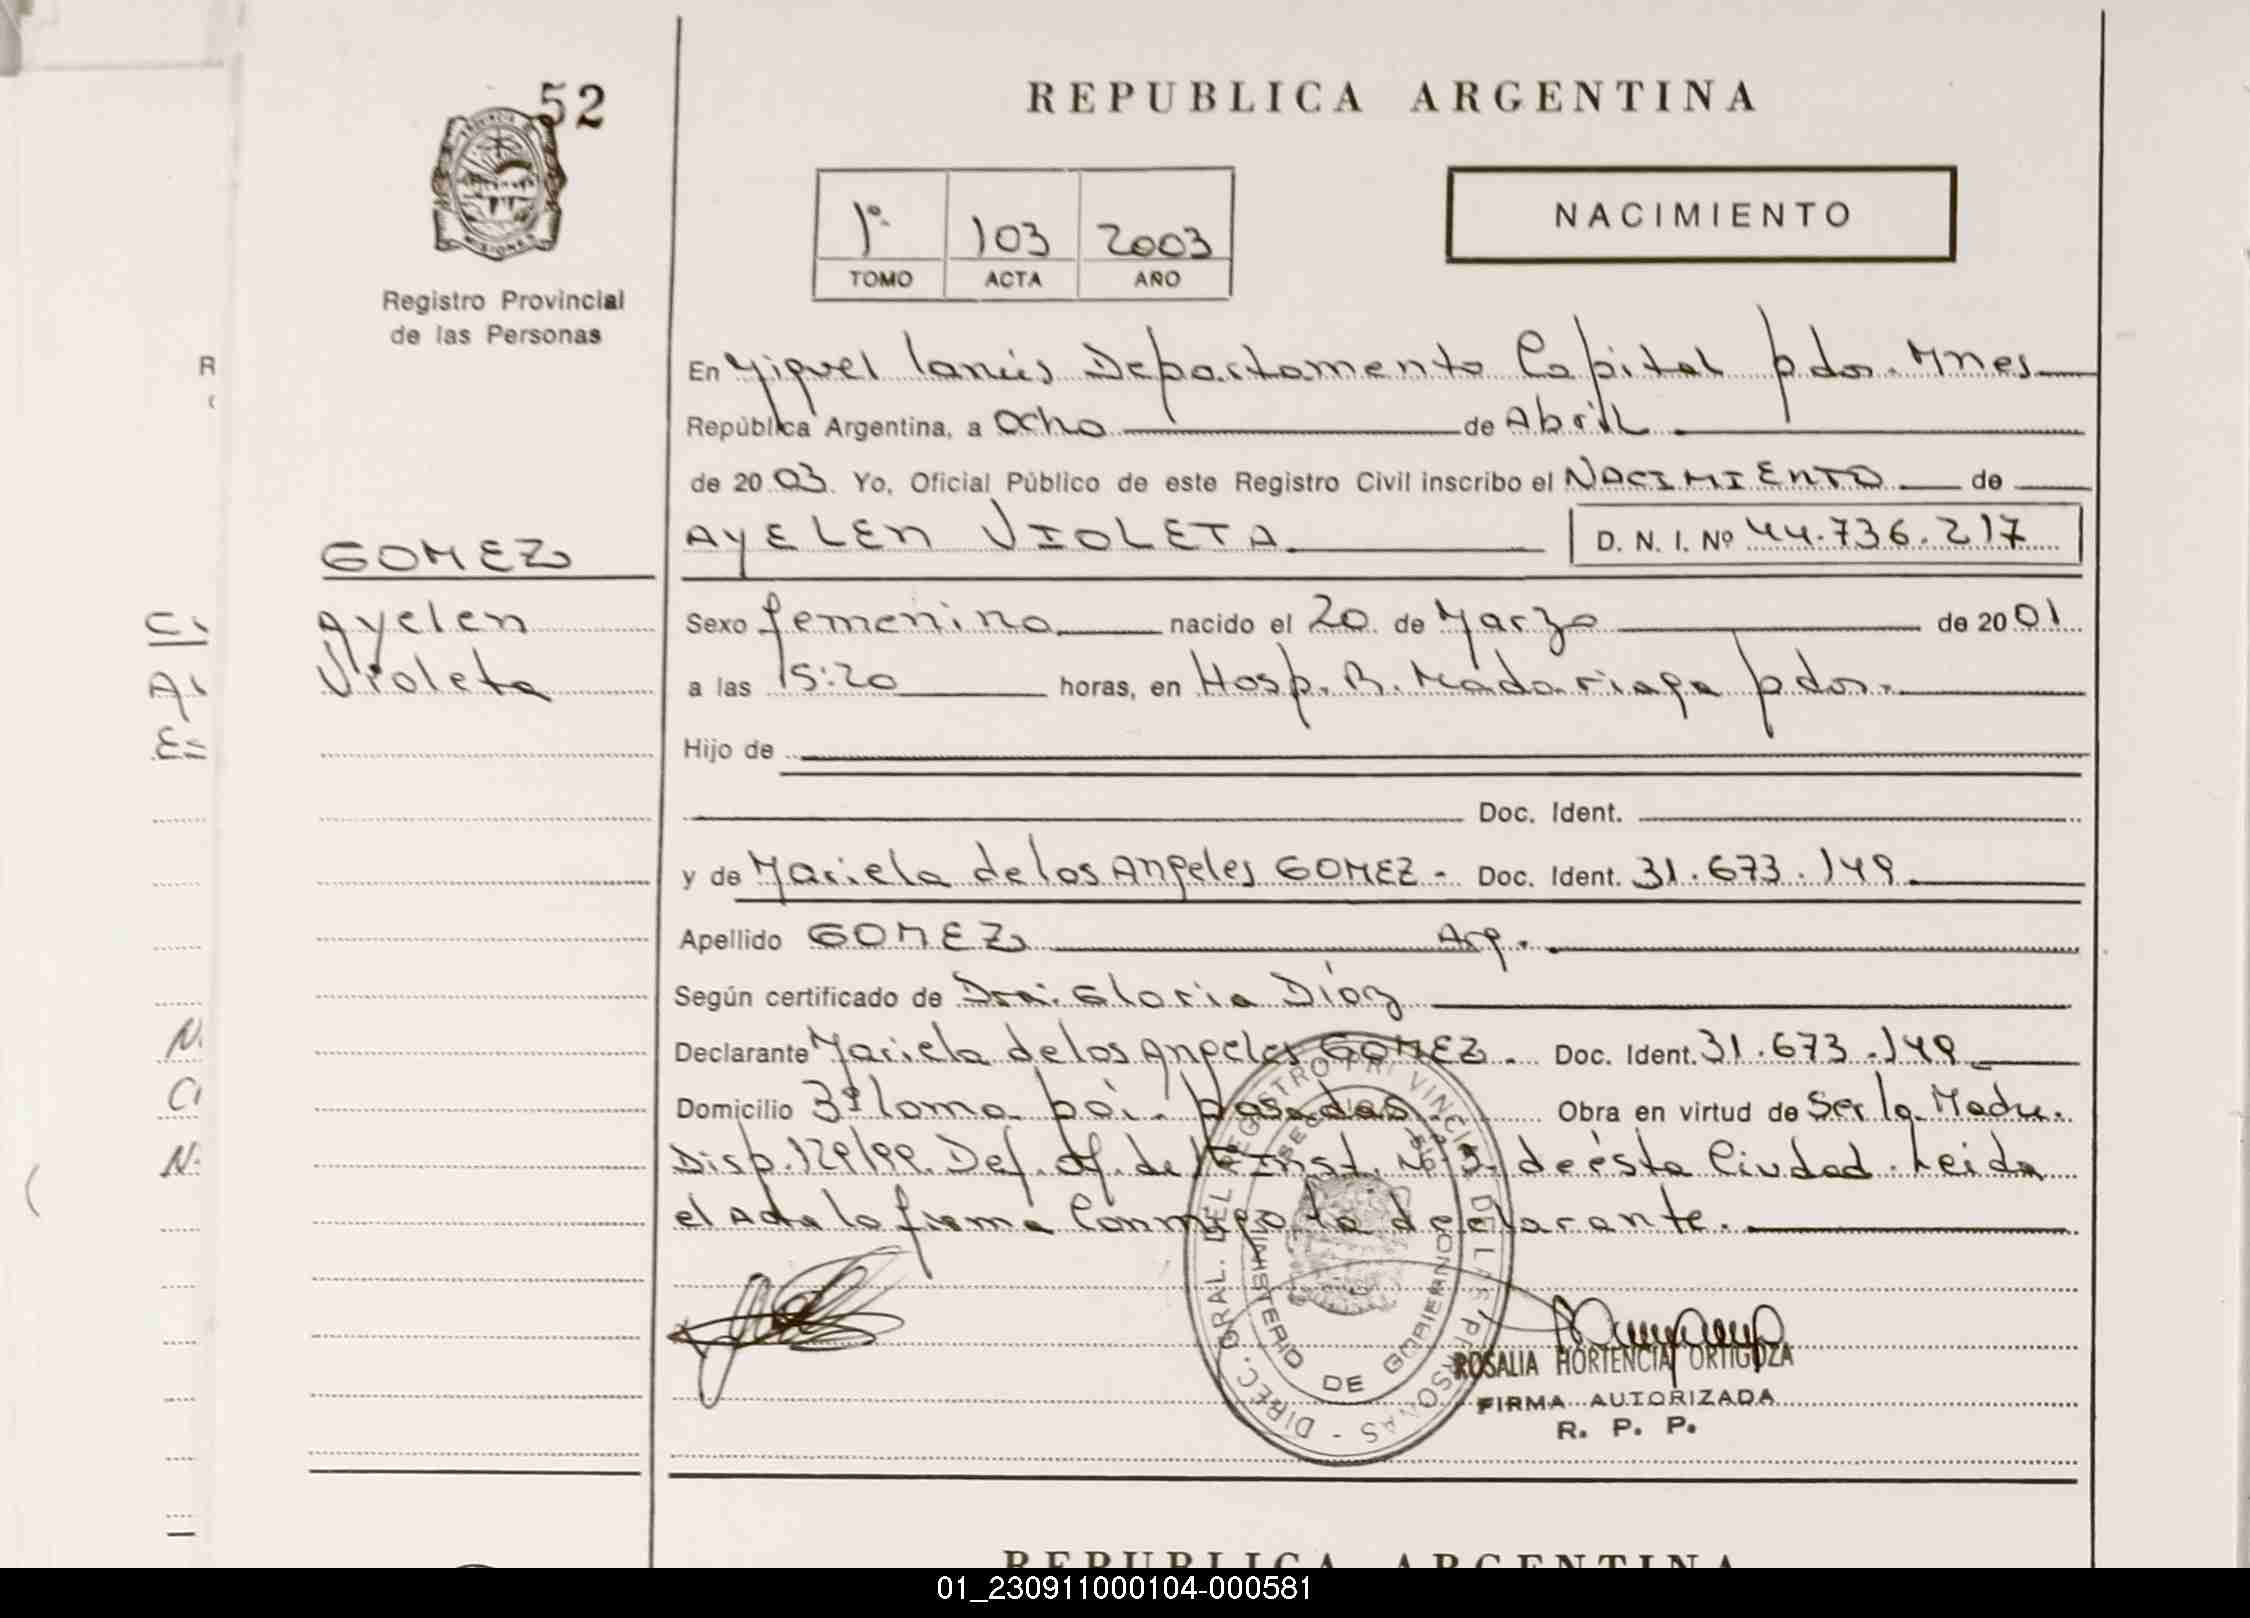 52
REPUBLICA ARGENTINA
PROVINCIA DE
MISIONES
1º 103 2003
TOMO ACTA AÑO
NACIMIENTO
Registro Provincial
de las Personas
En Miguel Lanús Departamento Capital Pdas. Mnes
República Argentina, a ocho de Abril
de 2003. Yo, Oficial Público de este Registro Civil inscribo el NACIMIENTO de
GOMEZ
AYELEN VIOLETA D. N. I. Nº 44.736.217
Ayelen
Violeta
Sexo femenino nacido el 20 de Marzo de 2001
a las 15:20 horas, en Hosp. R. Madariaga Pdas.
Hijo de
Doc. Ident.
y de Mariela de los Angeles GOMEZ - Doc. Ident. 31.673.149
Apellido GOMEZ Arg.
Según certificado de Dra. Gloria Díaz
Declarante Mariela de los Angeles GOMEZ. Doc. Ident. 31.673.149
Domicilio 3º loma Poi. Posadas. Obra en virtud de Ser la Madre.
Disp. 129/99. Def. Of. de 1º Inst. Nº 3. de ésta Ciudad. Leida
el Acta la firma Conmigo la declarante.
DIREC. GRAL. DEL REGISTRO PROVINCIAL DE LAS PERSONAS -
MINISTERIO DE GOBIERNO
ROSALIA HORTENCIA ORTIGOZA
FIRMA AUTORIZADA
R. P. P.
REPUBLICA ARGENTINA
01_230911000104-000581